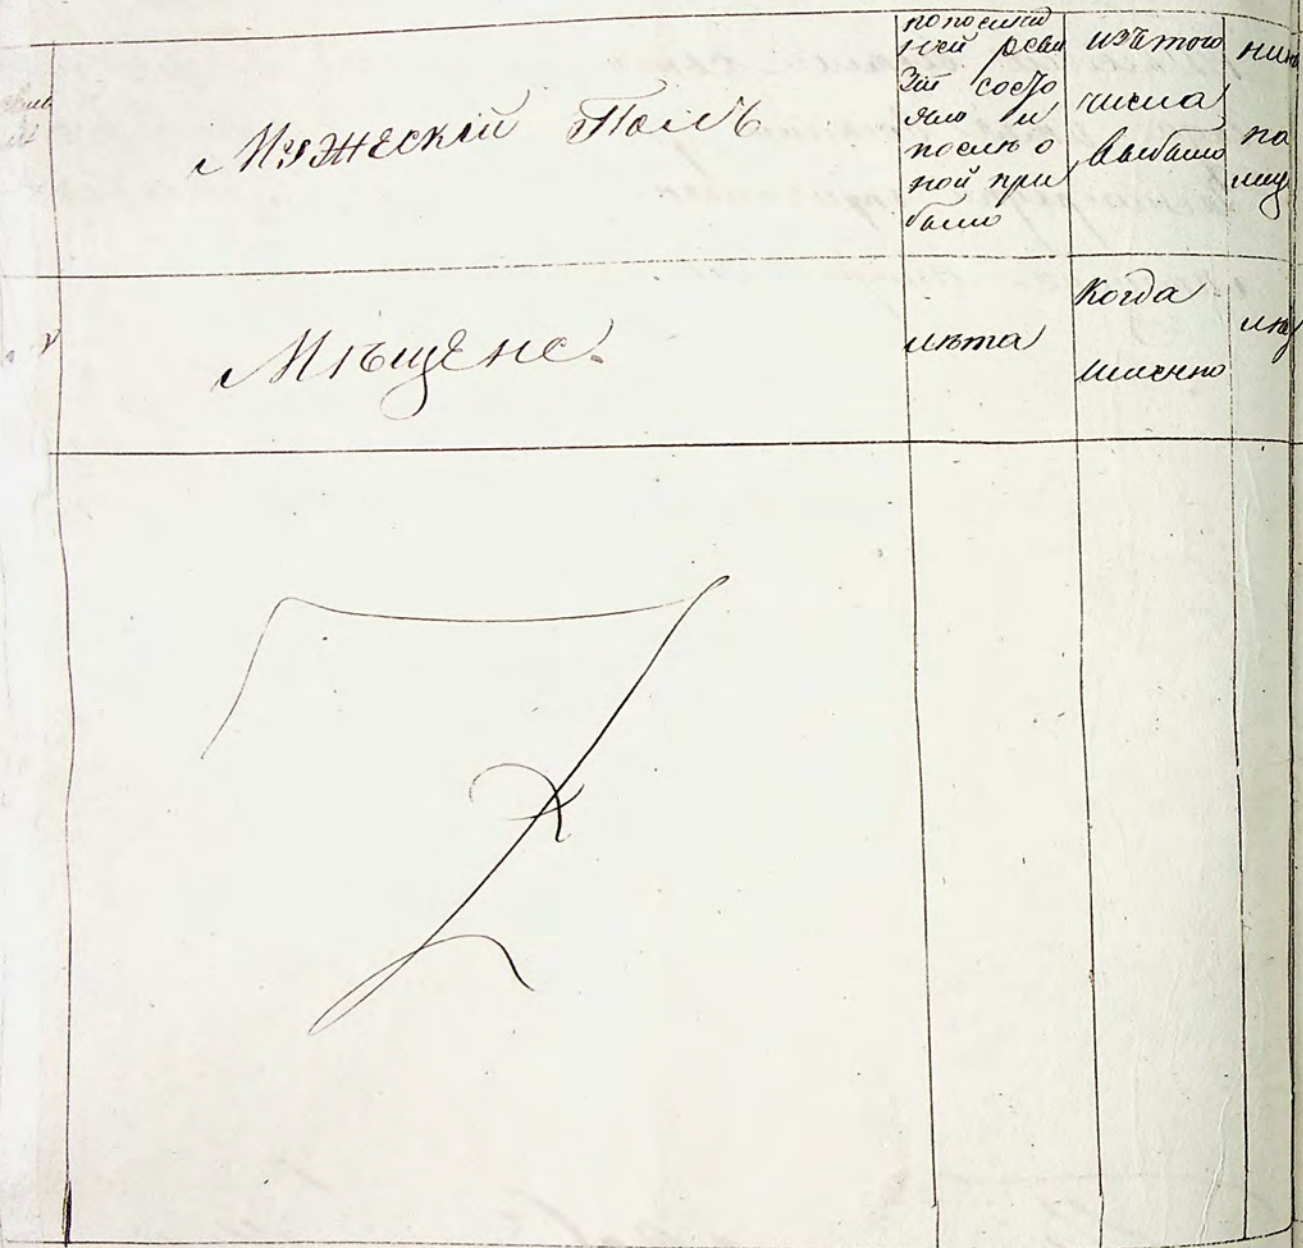 Мужескій Полъ
попослед
ней реви
зіи состо
яло и
послѣ о
ной при
было
изътого
числа
выбыло
на
лиц
Мѣщене.
лѣта
Когда
именно